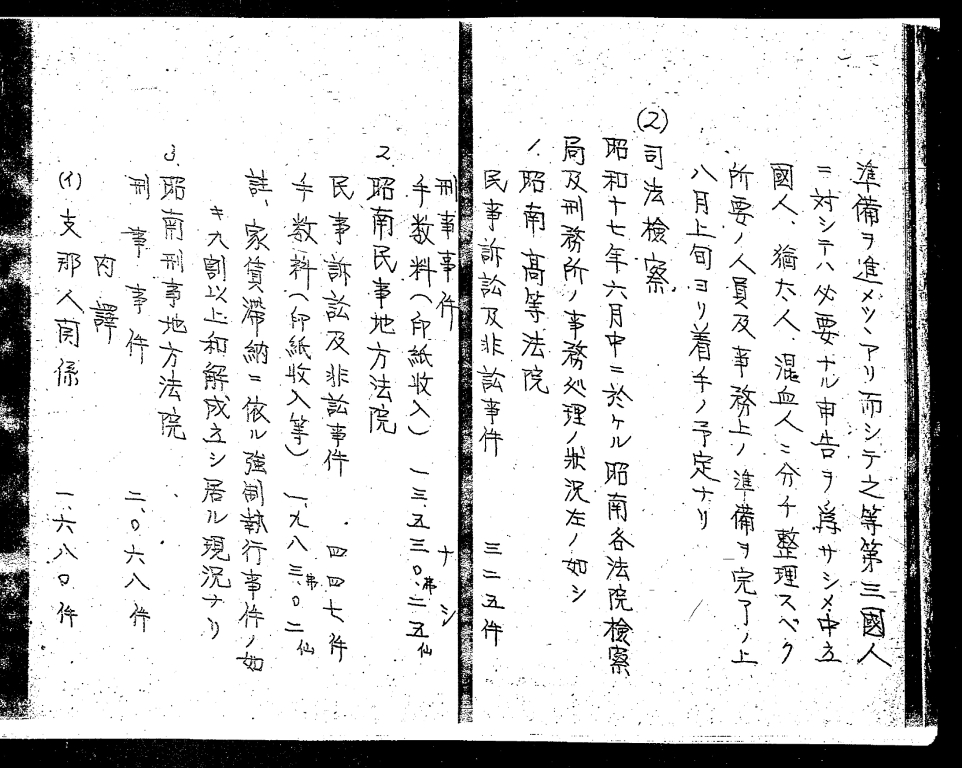 準備ヲ進メツヽアリ而シテ之等第三國人
ニ対シテハ必要ナル申告ヲ為サシメ中立
國人、猶太人、混血人ニ分チ整理スベク
所要ノ人員及事務上ノ準備ヲ完了ノ上
八月上旬ヨリ着手ノ予定ナリ
(2)司法檢察
昭和十七年六月中ニ於ケル昭南各法院檢察
局及刑務所ノ事務処理ノ狀況左ノ如シ
1. 昭南高等法院
民事訴訟及非訟事件 三二五件
刑事事件 ナシ
手数料(印紙收入) 一三、五三〇弗二五仙
2. 昭南民事地方法院
民事訴訟及非訟事件 四四七件
手数料(印紙收入等) 一、九八三弗〇二仙
註、家賃滞納ニ依ル強制執行事件ノ如
キ九割以上和解成立シ居ル現況ナリ
3. 昭南刑事地方法院
刑事事件 二、〇六八件
内譯
(イ)支那人関係 一、六八〇件